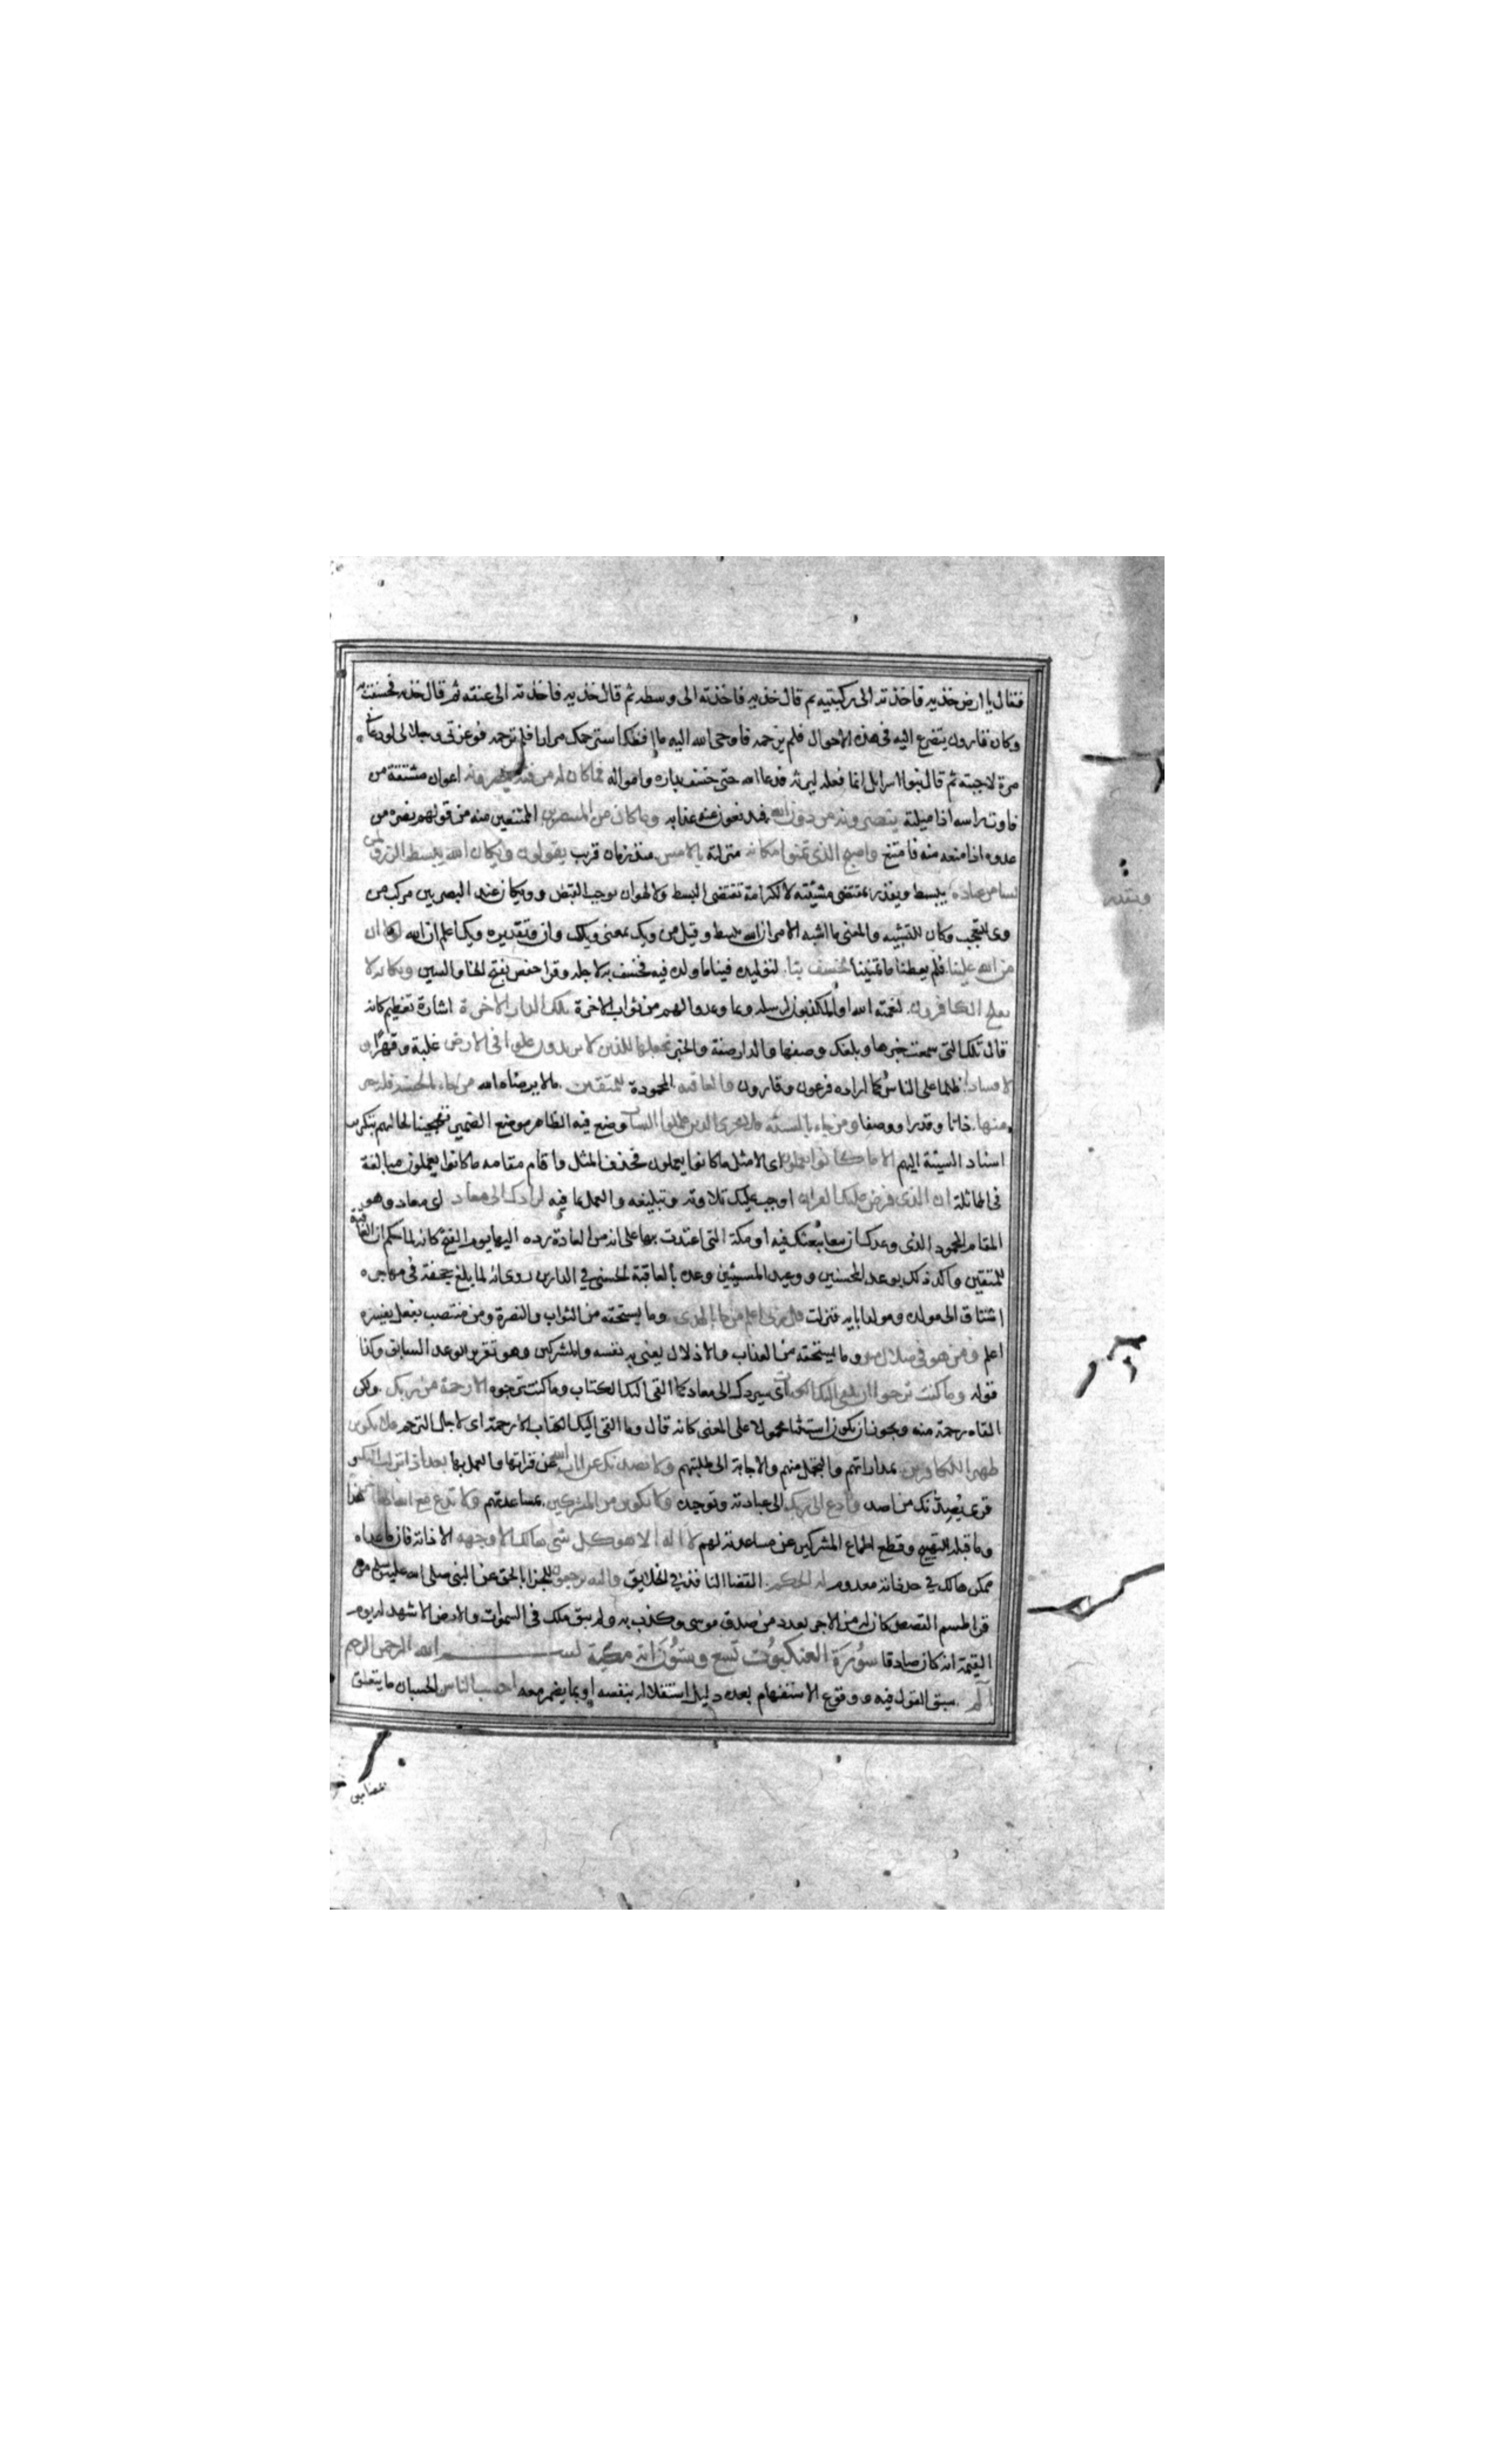 فقال يا ارض خذيه فاخذته الى ركبتيه ثم قال خذيه فاخذته الى وسطه ثم قال خذيه فاخذته الى عنقه ثم قال خذيه فخسفت به
وكان قارون يتضرع اليه في هذه الاحوال فلم يرحمه فاوحى الله اليه ما افظك استرحمك مرارا فلم ترحمه فوعزتي وجلالي لو دعاني
مرة لاجبته ثم قال بنوا اسرايل انما فعله ليرثه فدعا الله حتى خسف بداره وامواله فما كان له من فئة ينصرونه اعوان مشتقة من
فاوت راسه اذا ميلته ينصرونه من دون الله فيدفعون عنه عذابه وما كان من المنتصرين الممتنعين منه من قولهم نصره من
عدوه اذا منعه منه فامتنع واصبح الذي تمنوا مكانه منزلته بالامس منذ زمان قريب يقولون ويكان الله يبسط الرزق لمن
يشا من عباده يبسط ويقدر بمقتضى مشيئته لا لكرامة تقتضى البسط ولا لهوان يوجب القبض وويكان عند البصريين مركب من
وي للتعجب وكان للتشبيه والمعنى ما اشبه الامر ان الله يبسط وقيل من ويك بمعنى ويلك وان وتقديره ويك اعلم ان الله لولا ان
من الله علينا فلم يعطنا ما تمنينا لخسف بنا لتوليده فينا ما ولده فيه فخسف به لاجله وقرا حفص بفتح الخا والسين ويكانه لا
يفلح الكافرون لنعمة الله او المكذبون برسله وبما وعدوا لهم من ثواب الاخرة تلك الدار الاخرة اشارة تعظيم كانه
قال تلك التي سمعت خبرها وبلغك وصفها والدار صفة والخبر نجعلها للذين لا يريدون علوا في الارض غلبة وقهرا و
لا فسادا ظلما على الناس كما اراده فرعون وقارون والعاقبة المحمودة للمتقين ما لا يرضاه الله من جاء بالحسنة فله خير
منها ذاتا وقدرا ووصفا ومن جاء بالسيئة فلا يجزى الذين عملوا السيات وضع فيه الظاهر موضع الضمير تهجينا لحالهم بتكرير
اسناد السيئة اليهم الا ما كانوا يعملون اى الا مثل ما كانوا يعملون فحذف المثل واقام مقامه ما كانوا يعملون مبالغة
في المماثلة ان الذي فرض عليك القران اوجب عليك تلاوته وتبليغه والعمل بما فيه لرادك الى معاد اى معاد وهو
المقام المحمود الذي وعدك ان يبعثك فيه او مكة التي اعتدت بها على انه من العادة رده اليها يوم الفتح كانه لما حكم ان العاقبة
للمتقين واكد ذلك بوعد المحسنين ووعيد المسيئين وعده بالعاقبة الحسنى في الدارين روى انه لما بلغ جحفة في مهاجره
اشتاق الى مولده ومولد ابايه فنزلت قل ربي اعلم من جا بالهدى وما يستحقه من الثواب والنصرة ومن منتصب بفعل يفسره
اعلم ومن هو في ضلال مبين وما يستحقه من العذاب والاذلال يعنى به نفسه والمشركين وهو تقرير للوعد السابق وكذا
قوله وما كنت ترجوا ان يلقى اليك الكتاب اى سيردك الى معاد كما القى اليك الكتاب وما كنت ترجوه الا رحمة من ربك ولكن
القاه رحمة منه ويجوز ان يكون استثنا محمولا على المعنى كانه قال وما القى اليك الكتاب الا رحمة اى لاجل الترحم فلا تكونن
ظهيرا للكافرين بمداراتهم والتحمل منهم والاجابة الى طلبتهم ولا يصدنك عن ايات الله عن قراتها والعمل بها بعد اذ انزلت اليك و
قرى يصدنك من اصد وادع الى ربك الى عبادته وتوحيده ولا تكونن من المشركين بمساعدتهم ولا تدع مع الله الها اخر هذا
وما قبله للتهييج وقطع اطماع المشركين عن مساعدته لهم لا اله الا هو كل شى هالك الا وجهه الا ذاته فان ما عداه
ممكن هالك في حد ذاته معدوم له الحكم القضا النافذ في الخلايق واليه ترجعون للجزا بالحق عن النبي صلى الله عليه وسلم من
قرا طسم القصص كان له من الاجر بعدد من صدق موسى وكذب به ولم يبق ملك في السموات والارض الا شهد له يوم
القيمة انه كان صادقا سورة العنكبوت تسع وستون اية مكية بسم الله الرحمن الرحيم
الم سبق القول فيه ووقوع الاستفهام بعده دليل استقلاله بنفسه او بما يضمر معه احسب الناس الحسبان مما يتعلق
ويقدر